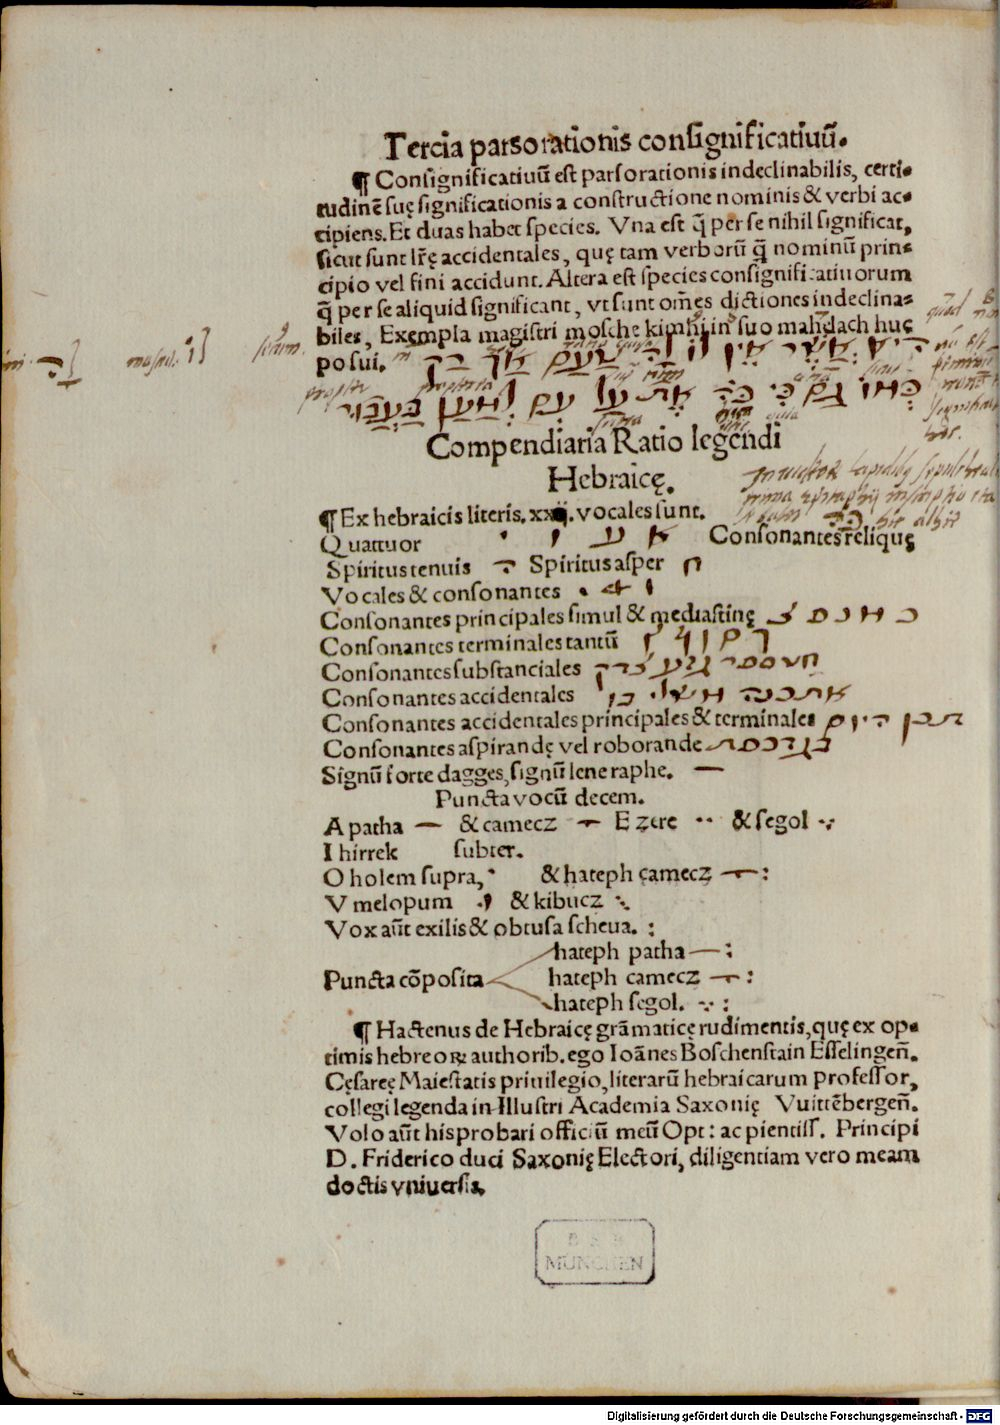 Tercia parsorationis consignificatiuũ.
¶ Consignificatiuũ est parsorationis indeclinabilis, certi⸗
tudinẽ suę significationis a constructione nominis & verbi ac⸗
cipiens. Et duas habet species. Vna est q̃ per se nihil significat,
sicut sunt lr̃ę accidentales, quę tam verborũ q̃ nominũ prin⸗
cipio vel fini accidunt. Altera est species consignificatiuorum
q̃ per se aliquid significant, vt sunt om̃es dictiones indeclina⸗
biles, Exempla magistri mosche kimhi in suo mahdach huc
posui.
כְּמוֹ גַם כִּי אֶת עַל עִם לְמַעַן בַּעֲבוּר
Compendiaria Ratio legendi
Hebraicę.
¶ Ex hebraicis literis. xxij. vocales sunt.
Quattuor א ע ו י Consonantes reliquę
Spiritus tenuis ה Spiritus asper ח
Vocales & consonantes
Consonantes principales simul & mediastinę כ מ נ פ צ
Consonantes terminales tantũ ך ם ן ף ץ
Consonantes substanciales חטספר גזע צדק
Consonantes accidentales אתכנה משלי בו
Consonantes accidentales principales & terminales תכן היום
Consonantes aspirandę vel roborande בגדכפת
Signũ forte dagges, signũ lene raphe. —
Puncta vocũ decem.
A patha — & camecz E zere ·· & segol
I hirrek subter.
O holem supra, & hateph camecz
V melopum & kibucz
Vox aũt exilis & obtusa scheua. :
hateph patha — :
Puncta cõposita hateph camecz :
hateph segol. :
¶ Hactenus de Hebraicę grãmaticę rudimentis, quę ex op⸗
timis hebreoꝝ authorib. ego Ioãnes Boschenstain Esselingeñ.
Cęsareę Maiestatis priuilegio, literarũ hebraicarum professor,
collegi legenda in Illustri Academia Saxonię Vuittẽbergeñ.
Volo aũt his probari officiũ meũ Opt: ac pientiss. Principi
D. Friderico duci Saxonię Electori, diligentiam vero meam
doctis vniuersis.
B S B
MÜNCHEN
Digitalisierung gefördert durch die Deutsche Forschungsgemeinschaft - DFG